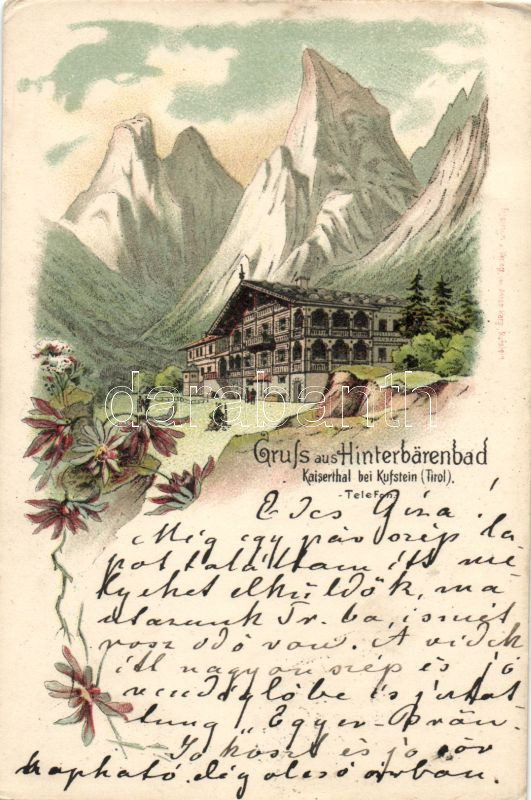 darabanth
Gruſs aus Hinterbärenbad
Kaiserthal bei Kufstein (Tirol).
-Telefon.-
Édes Géza!
Még egy pár szép la
pot találtam itt me
lyeket elküldök, ma
utazunk Tr. ba, ismét
rosz idő van. A vidék
itt nagyon szép és jó
vendéglőbe is jutot
tunk "Egger-Bräu"
Jó koszt és jó sör
kapható elég olcsó árban.